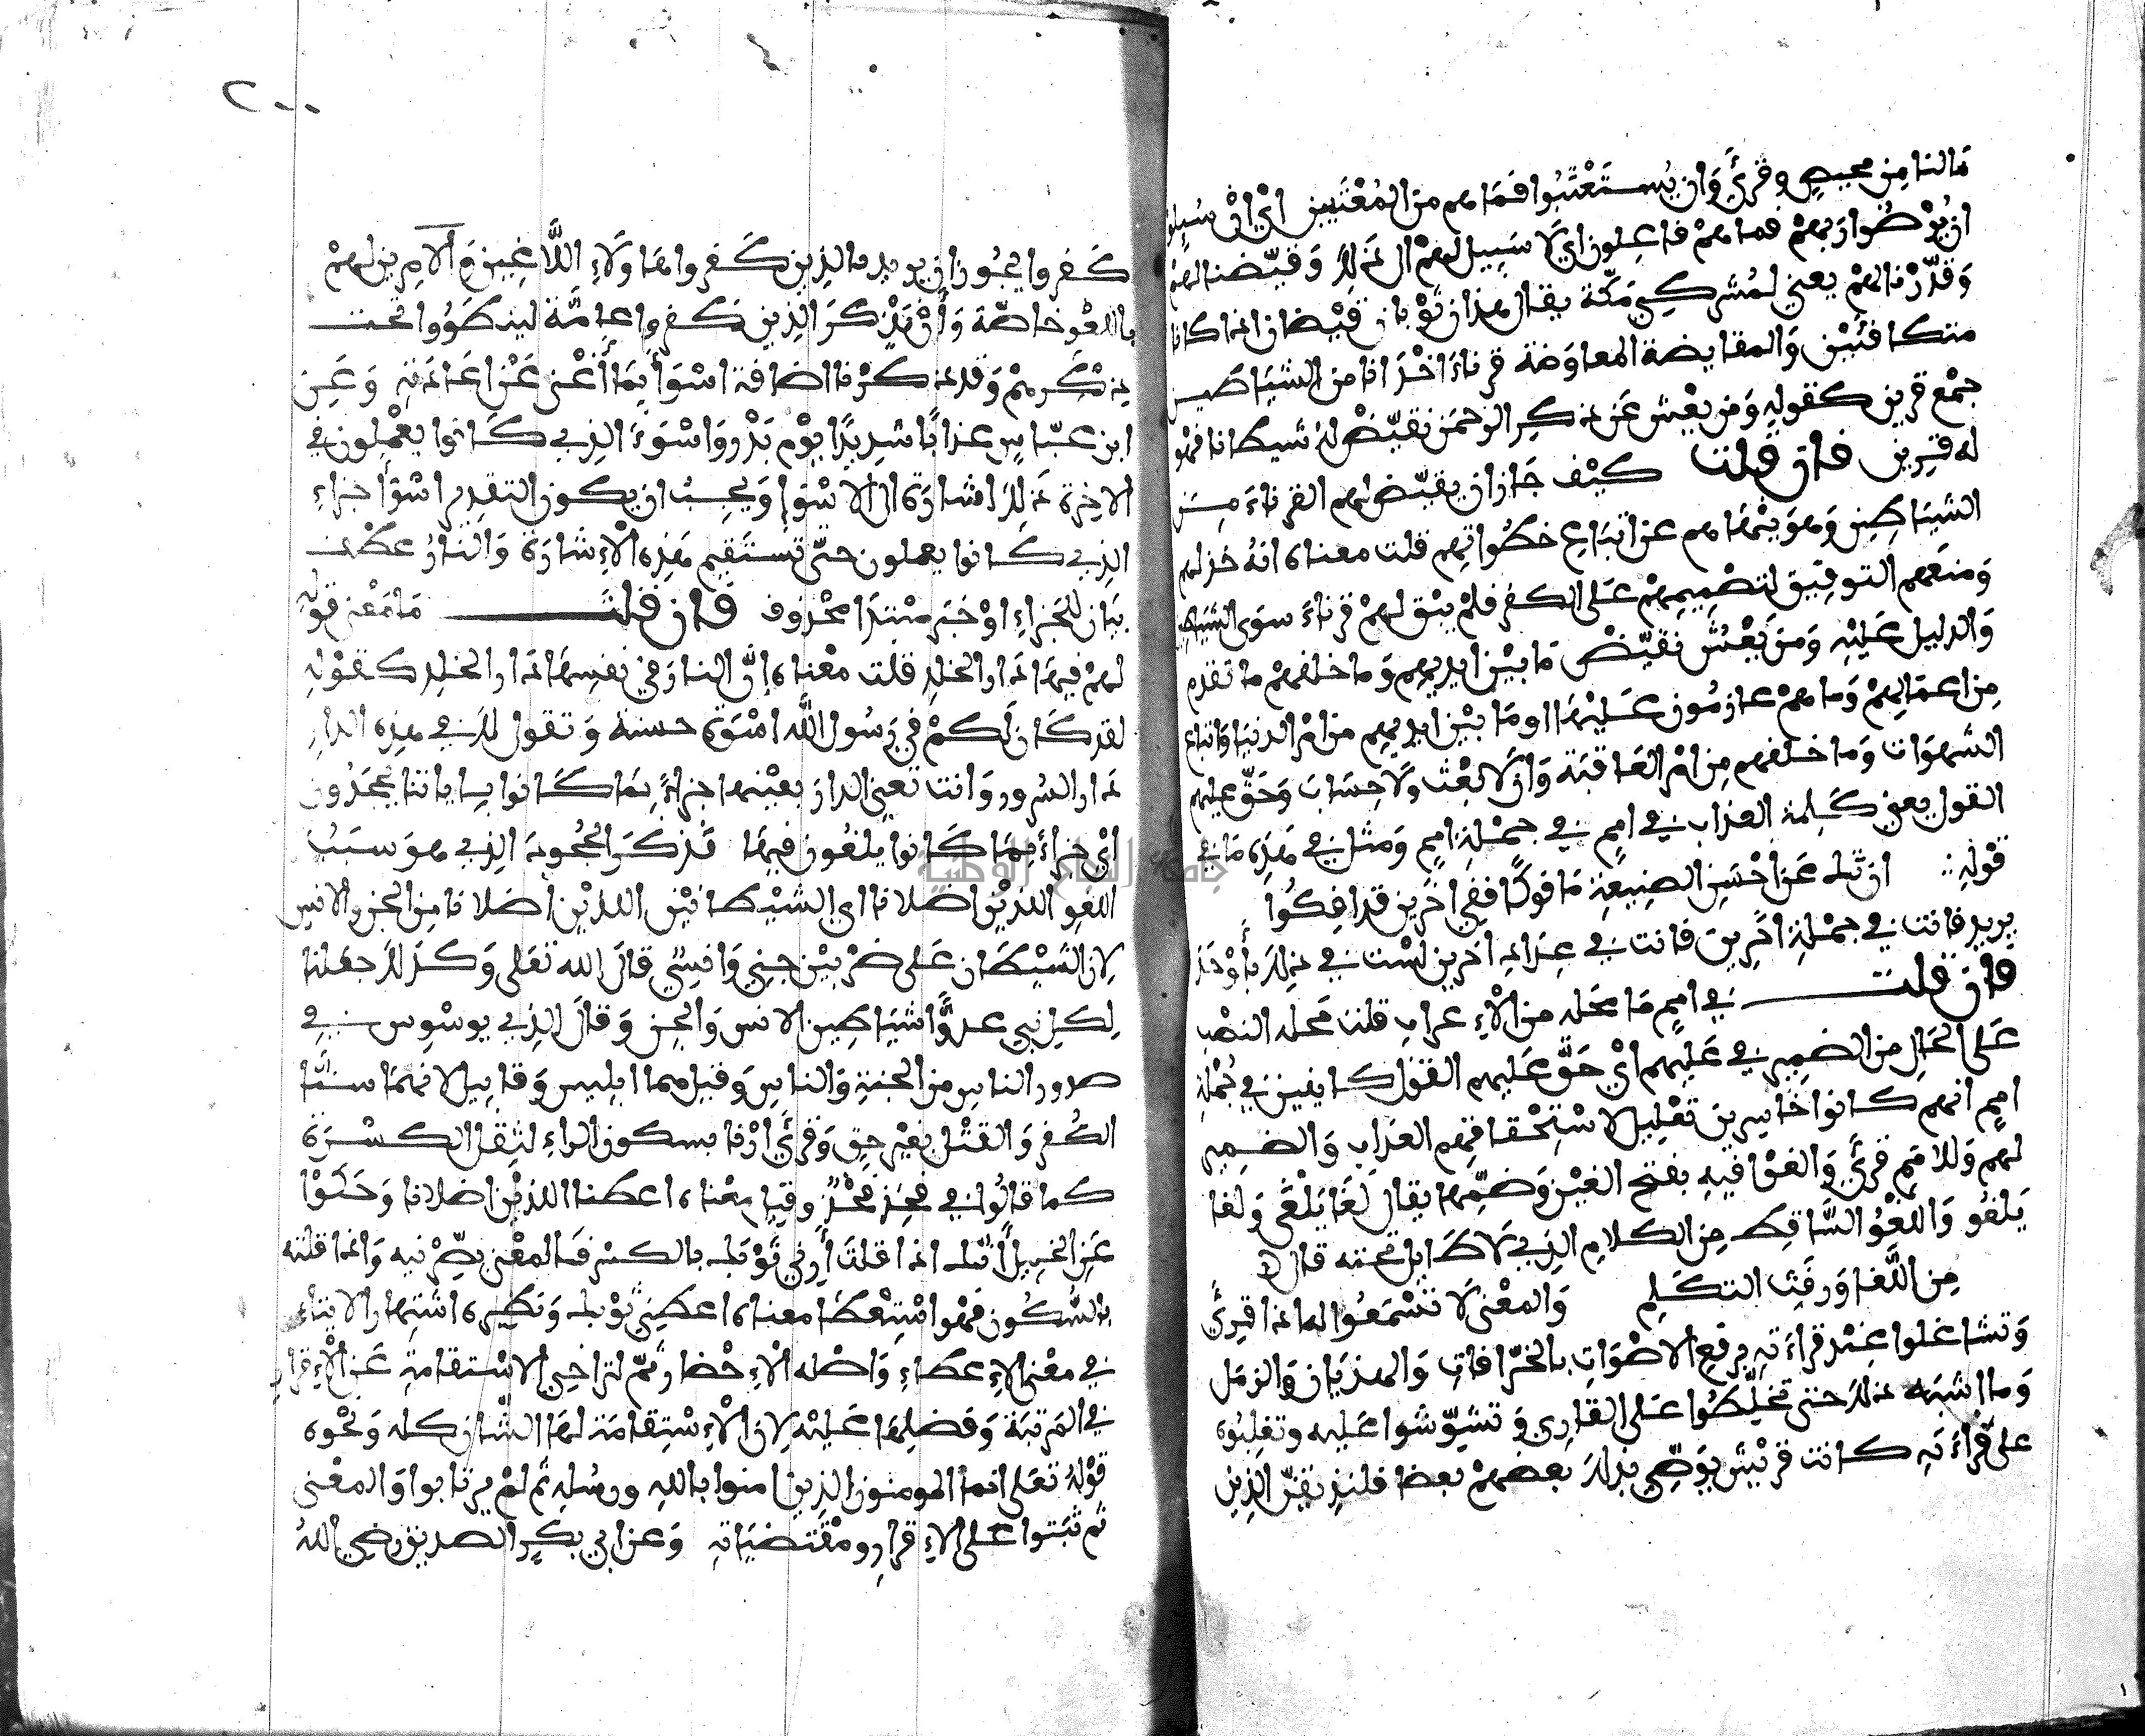 مَا لنا مِن محيصٍ وقرئَ وَان يُستَعْتَبُوا فمَا هم من المُعْتَبين اي ان سُيِلوا
ان يُرْضُوا رَبهمْ فما همْ فاعِلون اي لَا سَبِيل لهمْ الى ذَلك وَقيّضنا لهمْ
وَقدّرْنا لهمْ يعني لمُشركي مَكّة يقال هذان ثوْبان قيْضان اذا كانا
متكافئيْن وَالمقايضة المعاوَضة قرناءَ اخْدَانا من الشيَاطين
جمْع قرين كقولهِ وَمن يعْش عَن ذكرِ الرحمَن نقيّضْ لهُ شيطانا فهْو
له قرين فان قلت كيْف جَاز ان يقيّض لهم القرناءَ مِن
الشيَاطِين وَهوَ ينْهَاهم عن اتبَاعِ خطُواتهم قلت معناه انهُ خذلهم
وَمنعَهم التوفيق لتصْمِيمِهمْ عَلى الكفر فلمْ يبْق لهمْ قرناءَ سوَى الشيَاطين
وَالدليل عَليْهِ وَمن يَعْشُ نقيّضْ مَا بيْن ايديهم وَما خلفهمْ ما تقدم
مِن اعمَالِهمْ وَما همْ عازمُون عَليْهَا او مَا بيْن ايديهم من امْر الدنيَا وَاتباع
الشهوَات وَما خلفهم مِن امْر العَاقبَة وَان لَا بعْث ولَا حِسَابَ وَحَقّ عليهم
القول يعني كَلِمة العذاب في امم في جمْلةِ اممٍ وَمثل في هَذِه مَا في
قوْلهِ ان تك عَن احْسَن الصنِيعةِ مَافوكًا ففي اخَرين قد افِكُوا
يريد فانت في جمْلةِ اخَرِين فانت في عِدَادِ اخرين لسْت في ذلك بأوْحَد
فان قلت في اممٍ مَا مَحَله من الْإِعراب قلت مَحله النصْب
عَلى الحَالِ من الضمِير في عَليْهم ايْ حَقّ عَليهم القوْل كاينين في جُملة
اممٍ انهم كانوا خاسِرين تعْلِيل لاسْتِحْقاقهم العذَاب وَالضمِير
لهم وَللامَمِ قرئَ وَالغوْا فيهِ بفتح الغيْن وَضمِّها يقال لغَا يَلْغَى وَلغا
يَلغُو وَاللغْوُ السَّاقط مِن الكلامِ الذِي لَا طَايل تحته قال
مِن اللَّغا وَرفَث التكَلم وَالمعْنى لَا تسْمَعُوا له اذا قرِئَ
وَتشاغلوا عِنْد قراءَته برفع الاصْوَاتِ بالخُرافاتِ وَالهذيَان وَالزمَل
وَما اشبَهه ذلك حتى تخلِّطُوا عَلى القارِي وَتشوِّشوا عَليه وتغلِبُوه
على قراءَته كانت قريْش يوَصِّي بذلك بعضهمْ بعضا فلنذيقنّ الذِين
٢٠٠
كَفروا يجُوز ان يريد بالذِين كَفروا هَاولَاءِ اللَّاغِين وَالامِرين لهمْ
باللغْو خاصّة وَأنْ يَذْكرَ الذِين كَفروا عامّة لينطَوُوا تحت
ذكْرهمْ وَقد ذكرْنا اضافة اسْوَأ بِمَا أغْنى عَنْ اعَادَتهِ وَعَن
ابن عبّاس عذابًا شديدًا يوْم بَدْر وَاسْوَءَ الذِي كَانوا يعْملون في
الاخِرة ذلك اشارَة الى الاسْوَإ وَيجبُ ان يكون التقدِير اسْوَأ جزاءِ
الذِي كَانوا يعملون حتّى تستقيم هَذِه الْإِشارَة وَالنارُ عطف
بيَان للجَزاءِ اوْ خبَر مبْتدَإ محْذوف فان قلت مَا مَعْنى قوْلهِ
لهمْ فيهَا دَار الخلدِ قلت معْناه انَّ النارَ في نفسِهَا دَار الخلدِ كقوْلهِ
لقد كَان لَكمْ في رَسُول اللّه اسْوَة حسنة وَتقول لك في هذِه الدار
دَار السُرور وَانت تعْني الدار بعيْنها جزاءً بمَا كَانوا بِاياتنا يجحَدُون
ايْ جزاءً بمَا كَانوا يلغُون فيهَا فذكَرَ الجُحُودَ الذِي هوَ سبَبُ
اللغو اللذيْن اضلانا اي الشيْطانيْن اللذيْن اضلانا مِن الجن والانس
لان الشيْطَان عَلى ضرْبيْن جِني وَانسي قالَ الله تعَلى وَكذلك جعلنا
لِكلِ نبي عدوًّا شيَاطِين الانس وَالجن وَقالَ الذِي يوسْوِس في
صدور الناس من الجنةِ وَالناس وَقيل هما ابليس وَقابيل لانهمَا سنَّا
الكُفر وَالقتْل بغيْر حقٍ وَقرئ أرْنا بسكون الراءِ لثِقل الكسْرَة
كما قالُوا في فخِذ فخْذٌ وقيل معْناه اعطنا اللذيْن اضلانا وَحَكوْا
عَن الخلِيل انك اذا قلت أرِني ثَوْبَك بالكسْر فالمعْنى بصِّرْنيه وَاذا قلته
بالسُّكون فهْو اسْتِعْطَا معناه اعطني ثوْبك وَنظيره اشتهار الايتاء
في معْنى الإِعطاءِ وَاصْله الْإِحْضار ثمّ لتراخِي الاسْتقامةِ عَن الْإِقرار
في المَرْتبَة وَفضلِهَا عَليْه لان الْإِسْتِقامَة لهَا الشان كله وَنحْوه
قوْلهُ تعَلى انما المومنون الذِين امنوا باللهِ ورسُلهِ ثم لمْ يرتابوا وَالمعْنى
ثم ثبَتوا عَلى الإِقرارِ ومقْتضيَاته وَعن ابي بكرٍ الصديق رضي اللهُ